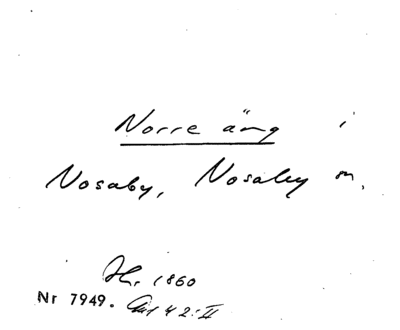 Norre äng i
Nosaby, Nosaby sn.
1860
Nr 7949. 42:II